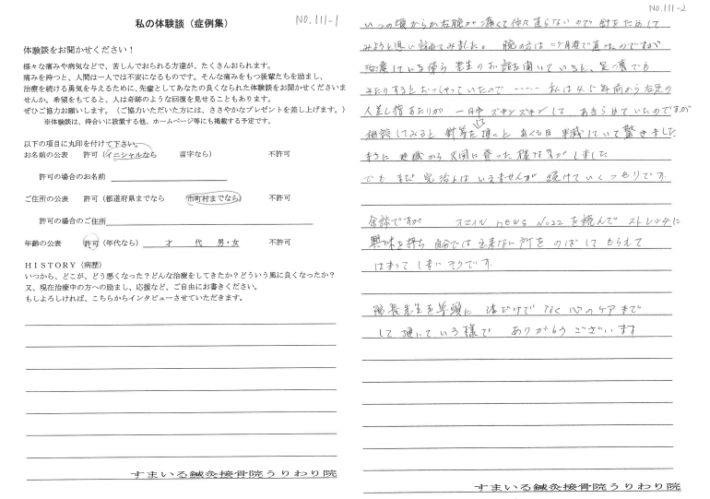 私の体験談（症例集）
NO.111-1
体験談をお聞かせください！
様々な痛みや病気などで、苦しんでおられる方達が、たくさんおられます。
痛みを持つと、人間は一人では不安になるものです。そんな痛みをもつ後輩たちを励まし、
治療を続ける勇気を与えるために、先輩としてあなたの良くなられた体験談をお聞かせくださいま
せんか。希望をもてると、人は奇跡のような回復を見せることもあります。
ぜひご協力お願いします。（ご協力いただいた方には、ささやかなプレゼントを差し上げます。）
※体験談は、待合いに設置する他、ホームページ等にも掲載する予定です。
以下の項目に丸印を付けて下さい。
お名前の公表 許可（イニシャルなら 苗字なら） 不許可
許可の場合のお名前
ご住所の公表 許可（都道府県までなら 市町村までなら） 不許可
許可の場合のご住所
年齢の公表 許可（年代なら） 才 代 男・女 不許可
ＨＩＳＴＯＲＹ（病歴）
いつから、どこが、どう悪くなった？どんな治療をしてきたか？どういう風に良くなったか？
又、現在治療中の方への励まし、応援など、ご自由にお書きください。
もしよろしければ、こちらからインタビューさせていただきます。
すまいる鍼灸接骨院うりわり院
NO.111-2
いつの頃からか右腕が痛くて仲々直らないので針をためして
みようと思い
腕の方は二ヶ月程で直ったのですが
先生のお話を聞いていると、足の裏でも
私は4.5年前から右足の
人差し指あたりが一日中ズキンズキンして あきらめていたのですが
相談してみると針等を頂くと あくる日 半減していて驚きました
まさに地獄から天国に登った様な気がしました
でも まだ完治とはいえませんが 続けていくつもりです
余談ですが スマイル news No22を読んで ストレッチに
興味を持ち 自分では出来ない所を のばしてもらえて
はまってしまいそうです
院長先生を筆頭に 体だけでなく心のケアまで
して頂いている様で ありがとうございます
すまいる鍼灸接骨院うりわり院